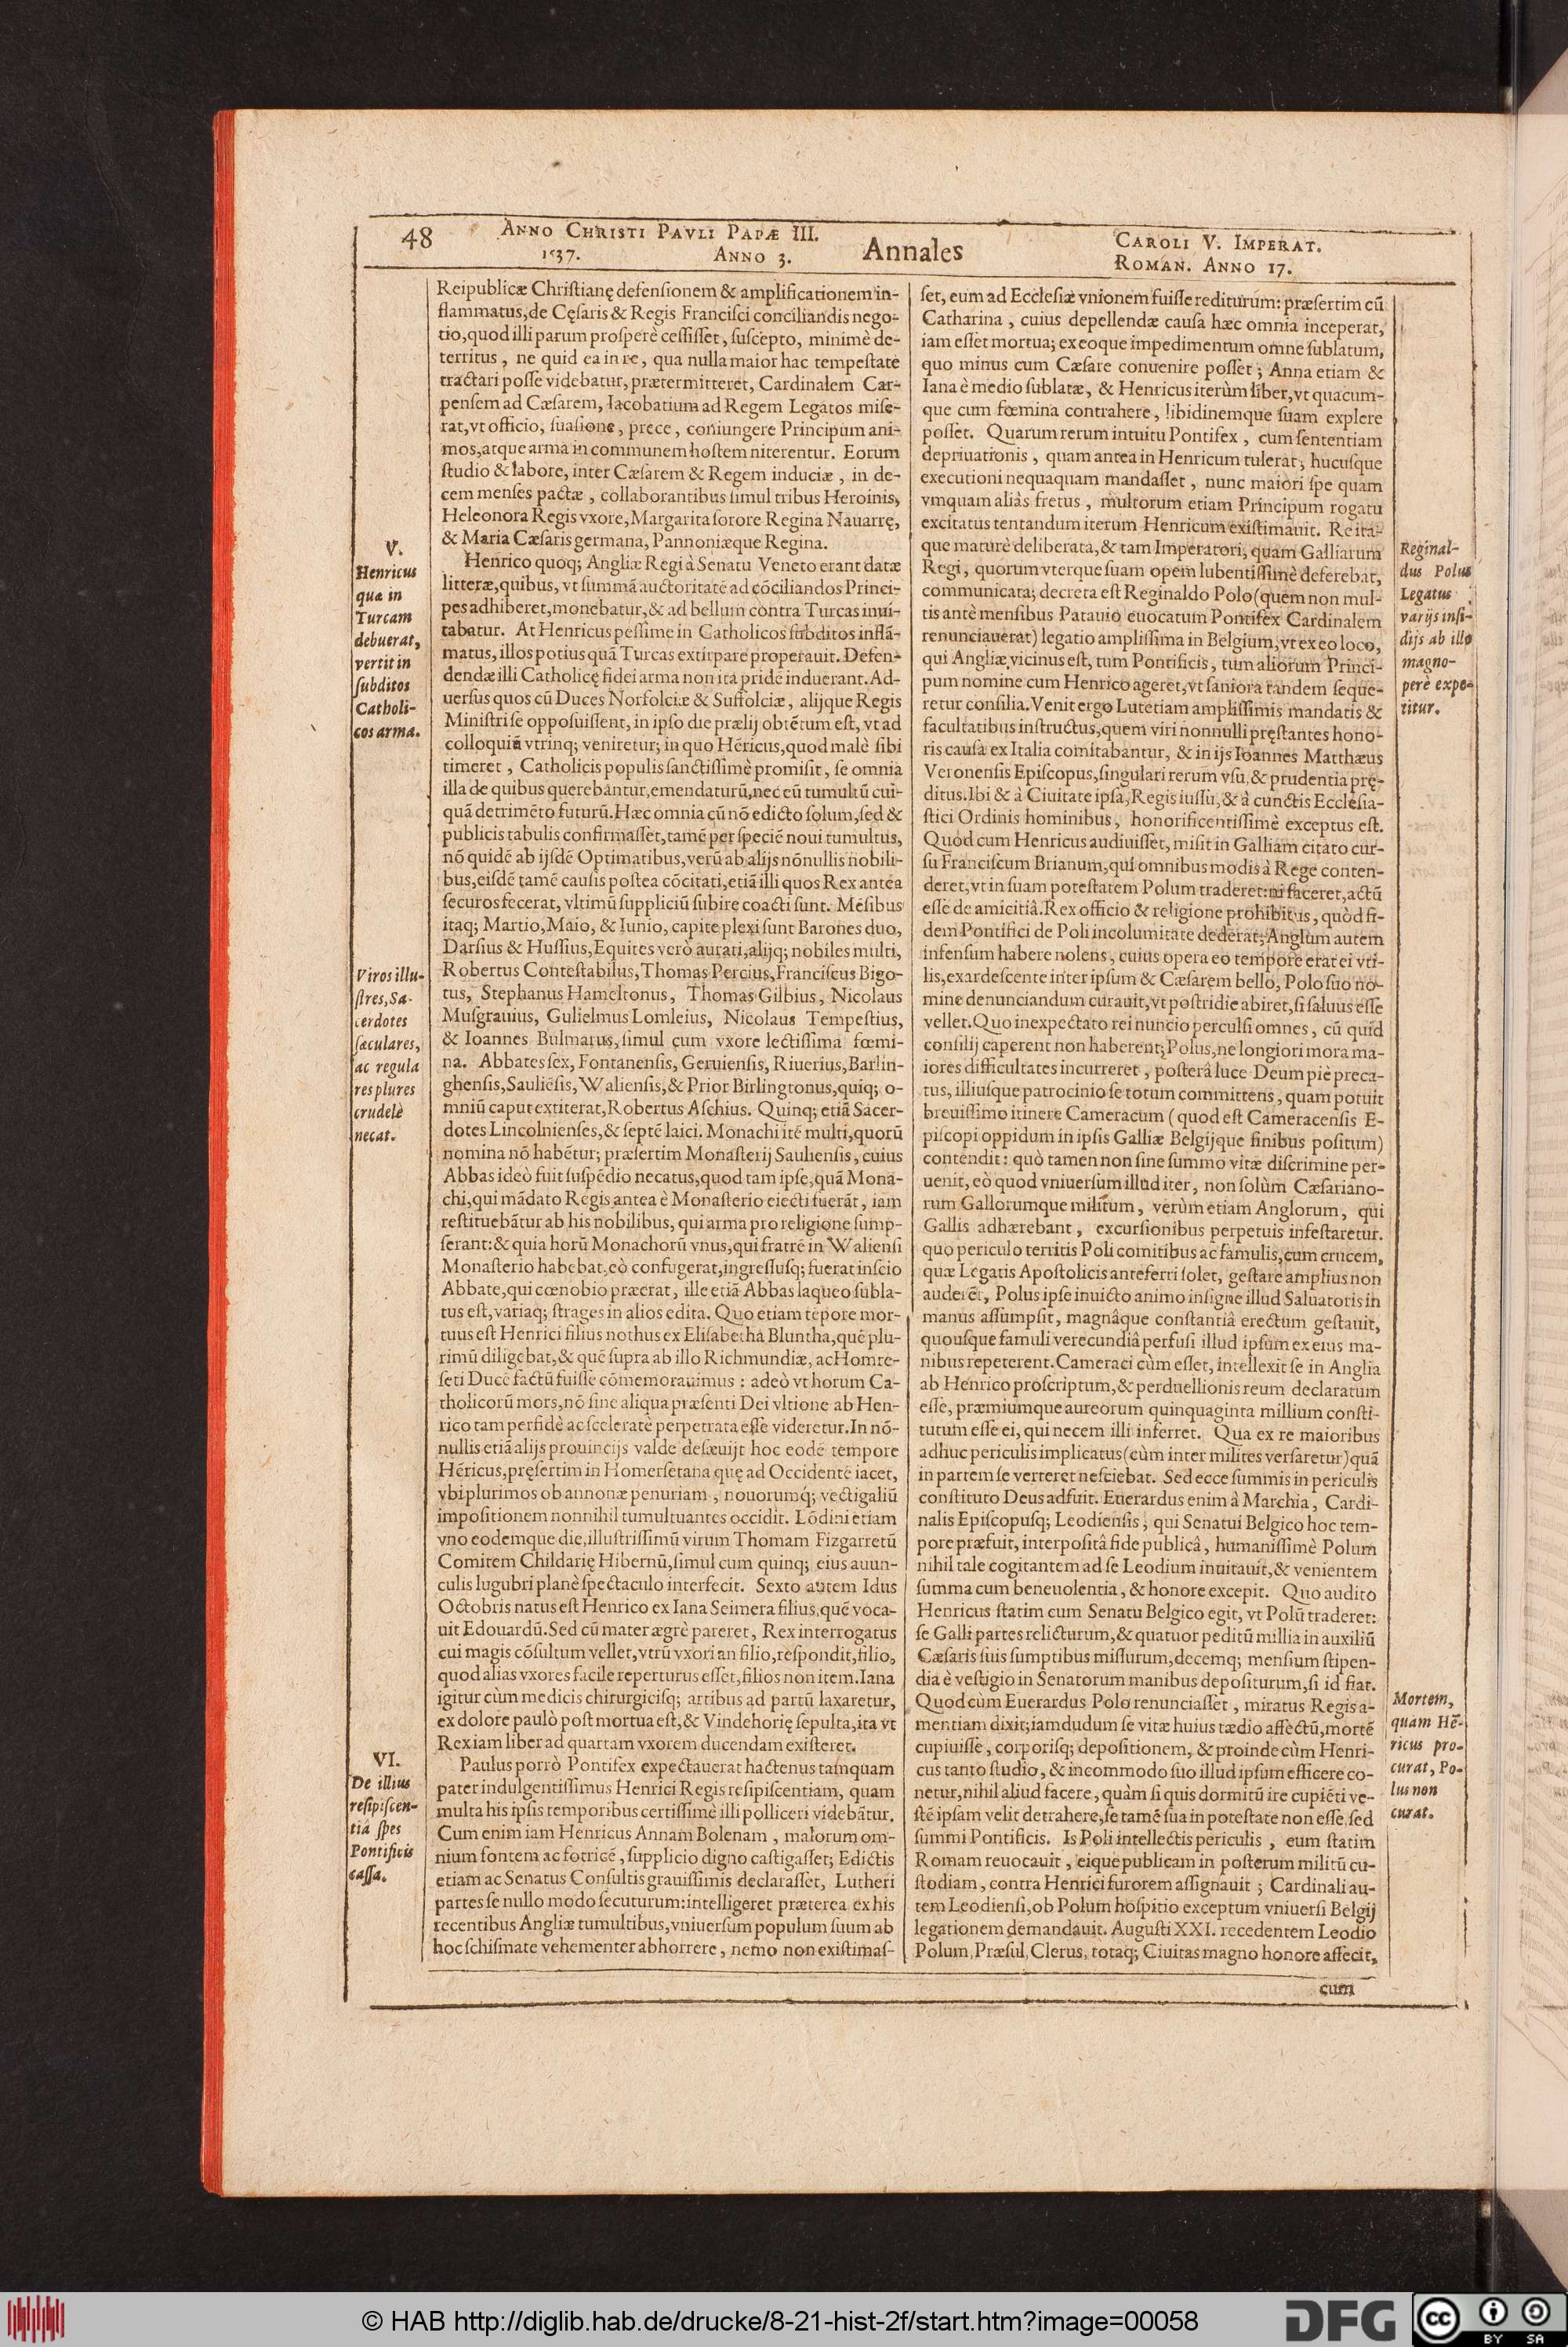 48
ANNO CHRISTI PAVLI PAPÆ III.
1537. ANNO 3.
Annales
CAROLI V. IMPERAT.
ROMAN. ANNO 17.
Reipublicæ Chriſtianę defenſionem & amplificationem in-
flammatus, de Cęſaris & Regis Franciſci conciliandis nego-
tio, quod illi parum proſperè ceſſiſſet, ſuſcepto, minimè de-
territus, ne quid ea in re, qua nulla maior hac tempeſtate
tractari poſſe videbatur, prætermitteret, Cardinalem Car-
penſem ad Cæſarem, Iacobatium ad Regem Legatos miſe-
rat, vt officio, ſuaſione, prece, coniungere Principum ani-
mos, atque arma in communem hoſtem niterentur. Eorum
ſtudio & labore, inter Cæſarem & Regem induciæ, in de-
cem menſes pactæ, collaborantibus ſimul tribus Heroinis,
Heleonora Regis vxore, Margarita ſorore Regina Nauarrę,
& Maria Cæſaris germana, Pannoniæque Regina.
V.
Henricus
quæ in
Turcam
debuerat,
vertit in
ſubditos
Catholi-
cos arma.
Henrico quoq; Angliæ Regi à Senatu Veneto erant datæ
litteræ, quibus, vt ſummā auctoritatē ad cōciliandos Princi-
pes adhiberet, monebatur, & ad bellum contra Turcas inui-
tabatur. At Henricus peſſime in Catholicos ſubditos inflā-
matus, illos potius quā Turcas extirpare properauit. Defen-
dendæ illi Catholicę fidei arma non ita pridē induerant. Ad-
uerſus quos cū Duces Norfolciæ & Suffolciæ, alijque Regis
Miniſtri ſe oppoſuiſſent, in ipſo die prælij obtētum eſt, vt ad
colloquiā vtrinq; veniretur; in quo Hēricus, quod malè ſibi
timeret, Catholicis populis ſanctiſſimè promiſit, ſe omnia
illa de quibus querebantur, emendaturū, nec eū tumultū cui-
quā detrimēto futurū. Hæc omnia cū nō edicto ſolum, ſed &
publicis tabulis confirmaſſet, tamē per ſpeciē noui tumultus,
nō quidē ab ijſdē Optimatibus, verū ab alijs nōnullis nobili-
bus, eiſdē tamē cauſis poſtea cōcitati, etiā illi quos Rex antea
ſecuros fecerat, vltimū ſuppliciū ſubire coacti ſunt. Mēſibus
itaq; Martio, Maio, & Iunio, capite plexi ſunt Barones duo,
Darſius & Huſſius, Equites verò aurati, alijq; nobiles multi,
Viros illu-
ſtres, Sa-
cerdotes
ſæculares,
ac regula
res plures
crudelè
necat.
Robertus Conteſtabilus, Thomas Percius, Franciſcus Bigo-
tus, Stephanus Hameltonus, Thomas Gilbius, Nicolaus
Muſgrauius, Gulielmus Lomleius, Nicolaus Tempeſtius,
& Ioannes Bulmarus, ſimul cum vxore lectiſſima fœmi-
na. Abbates ſex, Fontanenſis, Geruienſis, Riuerius, Barlin-
ghenſis, Sauliēſis, Walienſis, & Prior Birlingtonus, quiq; o-
mniū caput extiterat, Robertus Aſchius. Quinq; etiā Sacer-
dotes Lincolnienſes, & ſeptē laici. Monachi itē multi, quorū
nomina nō habētur; præſertim Monaſterij Saulienſis, cuius
Abbas ideò fuit ſuſpēdio necatus, quod tam ipſe, quā Mona-
chi, qui mādato Regis antea è Monaſterio eiecti fuerāt, iam
reſtituebātur ab his nobilibus, qui arma pro religione ſump-
ſerant: & quia horū Monachorū vnus, qui fratrē in Walienſi
Monaſterio habebat, eò confugerat, ingreſſuſq; fuerat inſcio
Abbate, qui cœnobio præerat, ille etiā Abbas laqueo ſubla-
tus eſt, variaq; ſtrages in alios edita. Quo etiam tēpore mor-
tuus eſt Henrici filius nothus ex Eliſabetha Bluntha, quē plu-
rimū diligebat, & quē ſupra ab illo Richmundiæ, ac Homre-
ſeti Ducē factū fuiſſe cōmemorauimus: adeò vt horum Ca-
tholicorū mors, nō ſine aliqua præſenti Dei vltione ab Hen-
rico tam perfidè ac ſceleratè perpetrata eſſe videretur. In nō-
nullis etiā alijs prouincijs valde deſæuijt hoc eodē tempore
Hēricus, pręſertim in Homerſetana quę ad Occidentē iacet,
vbi plurimos ob annonæ penuriam, nouorumq́; vectigaliū
impoſitionem nonnihil tumultuantes occidit. Lōdini etiam
vno eodemque die, illuſtriſſimū virum Thomam Fizgarretū
Comitem Childarię Hibernū, ſimul cum quinq; eius auun-
culis lugubri planè ſpectaculo interfecit. Sexto autem Idus
Octobris natus eſt Henrico ex Iana Seimera filius, quē voca-
uit Edouardū. Sed cū mater ægrè pareret, Rex interrogatus
cui magis cōſultum vellet, vtrū vxori an filio, reſpondit, filio,
quod alias vxores facile reperturus eſſet, filios non item. Iana
igitur cùm medicis chirurgiciſq; artibus ad partū laxaretur,
ex dolore paulò poſt mortua eſt, & Vindehorię ſepulta, ita vt
Rex iam liber ad quartam vxorem ducendam exiſteret.
VI.
De illius
reſipiſcen-
tia ſpes
Pontificis
caſſa.
Paulus porrò Pontifex expectauerat hactenus tamquam
pater indulgentiſſimus Henrici Regis reſipiſcentiam, quam
multa his ipſis temporibus certiſſimè illi polliceri videbātur.
Cum enim iam Henricus Annam Bolenam, malorum om-
nium fontem ac fotricē, ſupplicio digno caſtigaſſet; Edictis
etiam ac Senatus Conſultis grauiſſimis declaraſſet, Lutheri
partes ſe nullo modo ſecuturum: intelligeret præterea ex his
recentibus Angliæ tumultibus, vniuerſum populum ſuum ab
hoc ſchiſmate vehementer abhorrere, nemo non exiſtimaſ-
ſet, eum ad Eccleſiæ vnionem fuiſſe rediturum: præſertim cū
Catharina, cuius depellendæ cauſa hæc omnia inceperat,
iam eſſet mortua; ex eoque impedimentum omne ſublatum,
quo minus cum Cæſare conuenire poſſet; Anna etiam &
Iana è medio ſublatæ, & Henricus iterùm liber, vt quacum-
que cum fœmina contrahere, libidinemque ſuam explere
poſſet. Quarum rerum intuitu Pontifex, cum ſententiam
depriuationis, quam antea in Henricum tulerat, hucuſque
executioni nequaquam mandaſſet, nunc maiori ſpe quam
vmquam aliàs fretus, multorum etiam Principum rogatu
excitatus tentandum iterum Henricum exiſtimauit. Re ita-
que maturè deliberata, & tam Imperatori, quam Galliarum
Regi, quorum vterque ſuam opem lubentiſſimè deferebat,
communicata; decreta eſt Reginaldo Polo (quem non mul-
tis antè menſibus Patauio euocatum Pontifex Cardinalem
renunciauerat) legatio ampliſſima in Belgium, vt ex eo loco,
qui Angliæ vicinus eſt, tum Pontificis, tum aliorum Princi-
pum nomine cum Henrico ageret, vt ſaniora tandem ſeque-
retur conſilia. Venit ergo Lutetiam ampliſſimis mandatis &
facultatibus inſtructus, quem viri nonnulli pręſtantes hono-
ris cauſa ex Italia comitabantur, & in ijs Ioannes Matthæus
Veronenſis Epiſcopus, ſingulari rerum vſu, & prudentia prę-
ditus. Ibi & à Ciuitate ipſa, Regis iuſſu, & à cunctis Eccleſia-
ſtici Ordinis hominibus, honorificentiſſimè exceptus eſt.
Quòd cum Henricus audiuiſſet, miſit in Galliam citato cur-
ſu Franciſcum Brianum, qui omnibus modis à Rege conten-
deret, vt in ſuam poteſtatem Polum traderet: ni faceret, actū
eſſe de amicitiâ. Rex officio & religione prohibitus, quòd fi-
dem Pontifici de Poli incolumitate dederat, Anglum autem
infenſum habere nolens, cuius opera eo tempore erat ei vti-
lis, exardeſcente inter ipſum & Cæſarem bello, Polo ſuo no-
mine denunciandum curauit, vt poſtridie abiret, ſi ſaluus eſſe
vellet. Quo inexpectato rei nuncio perculſi omnes, cū quid
conſilij caperent non haberent; Polus, ne longiori mora ma-
iores difficultates incurreret, poſterâ luce Deum piè preca-
tus, illiuſque patrocinio ſe totum committens, quam potuit
breuiſſimo itinere Cameracum (quod eſt Cameracenſis E-
piſcopi oppidum in ipſis Galliæ Belgijque finibus poſitum)
contendit: quò tamen non ſine ſummo vitæ diſcrimine per-
uenit, eò quod vniuerſum illud iter, non ſolùm Cæſariano-
rum Gallorumque militum, verùm etiam Anglorum, qui
Gallis adhærebant, excurſionibus perpetuis infeſtaretur.
quo periculo territis Poli comitibus ac famulis, cum crucem,
quæ Legatis Apoſtolicis anteferri ſolet, geſtare amplius non
auderēt, Polus ipſe inuicto animo inſigne illud Saluatoris in
manus aſſumpſit, magnâque conſtantiâ erectum geſtauit,
quouſque famuli verecundiâ perfuſi illud ipſum ex eius ma-
nibus repeterent. Cameraci cùm eſſet, intellexit ſe in Anglia
ab Henrico proſcriptum, & perduellionis reum declaratum
eſſe, præmiumque aureorum quinquaginta millium conſti-
tutum eſſe ei, qui necem illi inferret. Qua ex re maioribus
adhuc periculis implicatus (cùm inter milites verſaretur) quā
in partem ſe verteret neſciebat. Sed ecce ſummis in periculis
conſtituto Deus adfuit. Euerardus enim à Marchia, Cardi-
nalis Epiſcopuſq; Leodienſis, qui Senatui Belgico hoc tem-
pore præfuit, interpoſitâ fide publicâ, humaniſſimè Polum
nihil tale cogitantem ad ſe Leodium inuitauit, & venientem
ſumma cum beneuolentia, & honore excepit. Quo audito
Henricus ſtatim cum Senatu Belgico egit, vt Polū traderet:
ſe Galli partes relicturum, & quatuor peditū millia in auxiliū
Cæſaris ſuis ſumptibus miſſurum, decemq; menſium ſtipen-
dia è veſtigio in Senatorum manibus depoſiturum, ſi id fiat.
Quod cùm Euerardus Polo renunciaſſet, miratus Regis a-
mentiam dixit; iamdudum ſe vitæ huius tædio affectū, mortē
cupiuiſſe, corporiſq; depoſitionem, & proinde cùm Henri-
cus tanto ſtudio, & incommodo ſuo illud ipſum efficere co-
netur, nihil aliud facere, quàm ſi quis dormitū ire cupiēti ve-
ſtē ipſam velit detrahere, ſe tamē ſua in poteſtate non eſſe, ſed
ſummi Pontificis. Is Poli intellectis periculis, eum ſtatim
Romam reuocauit, eique publicam in poſterum militū cu-
ſtodiam, contra Henrici furorem aſſignauit; Cardinali au-
tem Leodienſi, ob Polum hoſpitio exceptum vniuerſi Belgij
legationem demandauit. Auguſti XXI. recedentem Leodio
Polum, Præſul, Clerus, totaq; Ciuitas magno honore affecit,
Reginal-
dus Polus
Legatus
varijs inſi-
dijs ab illo
magno-
perè expe-
titur.
Mortem,
quam Hē-
ricus pro-
curat, Po-
lus non
curat.
cum
© HAB http://diglib.hab.de/drucke/8-21-hist-2f/start.htm?image=00058
DFG
cc
BY SA